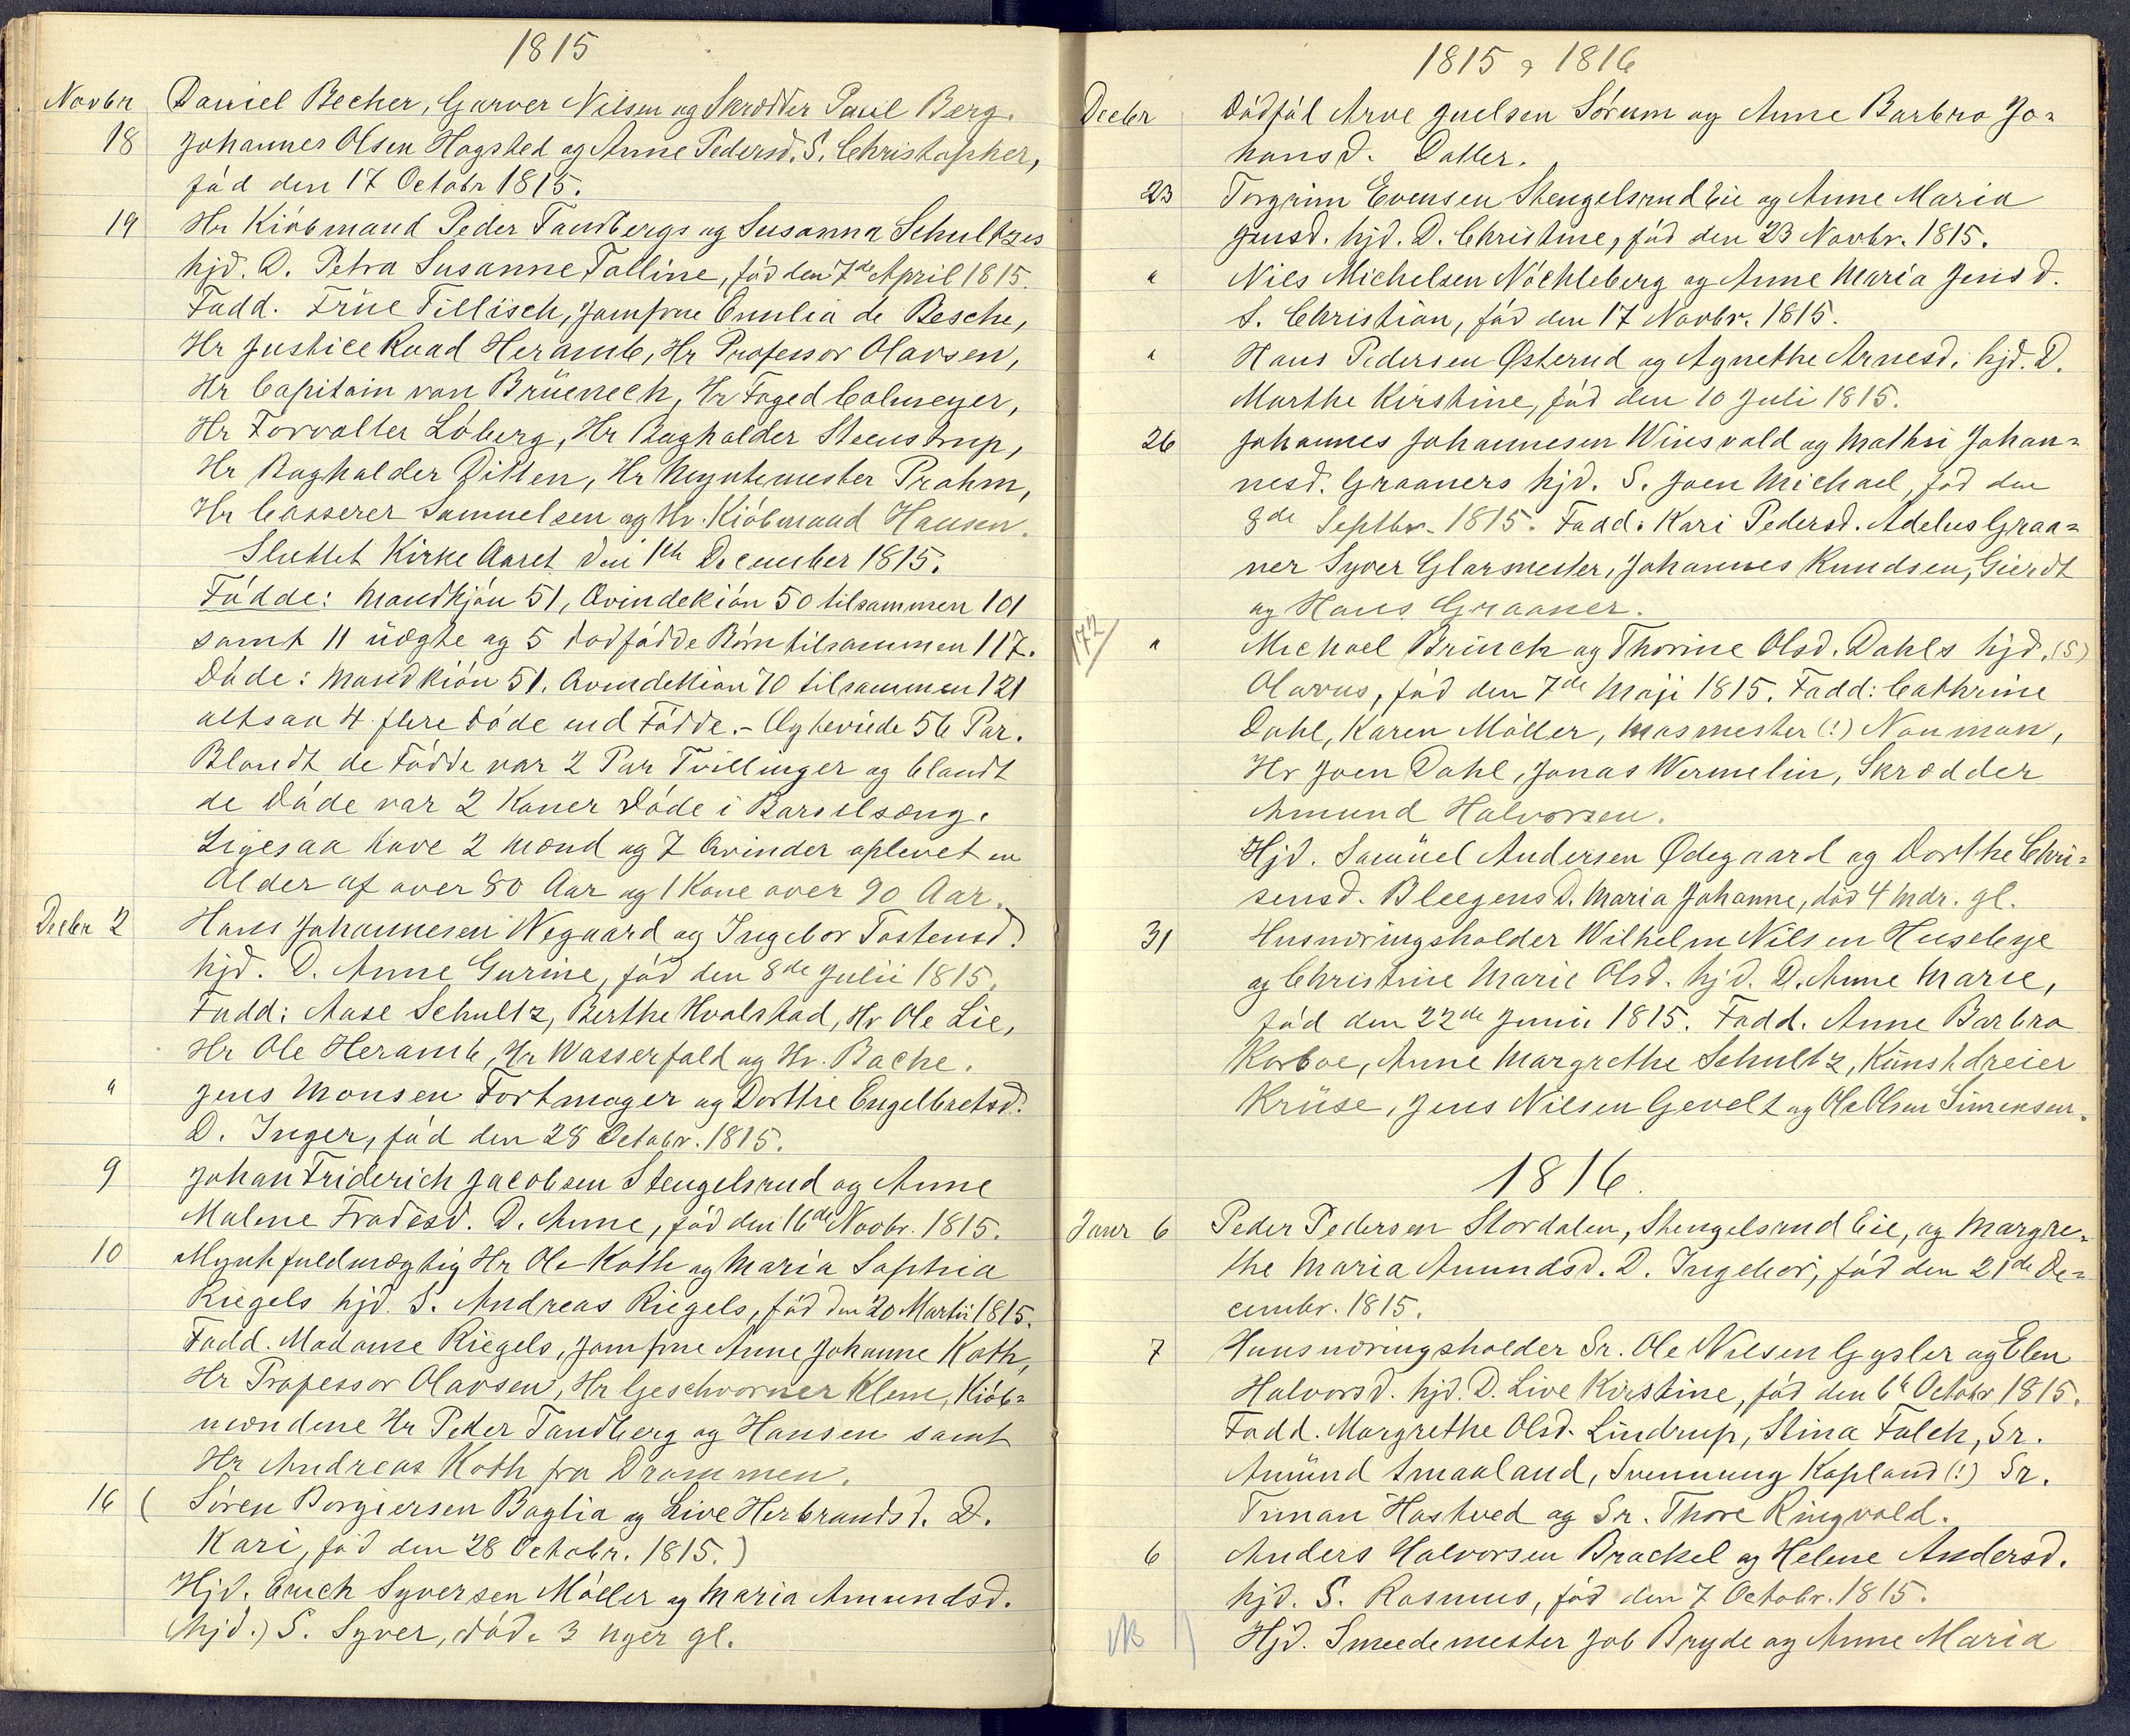 1815
Novbr Daniel Becher, Garver Nilsen og Skrædder Paul Berg.
18 Johannes Olsen Hagsted og Anne Pedersd. S. Christopher,
fød den 17 Octobr 1815.
19 Hr Kiøbmand Peder Tandbergs og Susanna Schultzes
hjd. D. Petra Susanne Talline, fød den 7de April 1815.
Fadd. Früe Tillisch, Jomfrue Emilia de Besche,
Hr Justice Raad Heramb, Hr Professor Olavsen,
Hr Capitain von Brüenech, Hr Foged Colmeyer,
Hr Forvalter Løberg, Hr Bogholder Steenstrup,
Hr Bogholder Ditten, Hr Myntemester Prahm,
Hr Casserer Samuelsen og Hr. Kiøbmand Hansen.
Sluttet Kirke Aaret den 1te December 1815.
Fødde: Mandkjøn 51, Qvindekiøn 50 tilsammen 101
samt 11 üægte og 5 dødfødde Børn tilsammen 117.
Døde: Mandkiøn 51. Qvindekiøn 70 tilsammen 121
altsaa 4 flere døde end Fødde. - Ægteviede 56 Par.
Blandt de Fødde var 2 Par Tvillinger og blandt
de døde var 2 Koner døde i Barselsæng.
Ligesaa have 2 Mænd og 7 Qvinder oplevet en
Alder af over 80 Aar og 1 Kone over 90 Aar.
Decbr 2 Hans Johannesen Wegaard og Ingebor Tostensd.
hjd. D. Anne Gurine, fød den 8de Julii 1815.
Fadd: Aase Schultz, Berthe Hvalstad, Hr Ole Lie,
Hr Ole Heramb, Hr Wasserfald og Hr. Bache.
" Jens Monsen Fortmager og Dorthe Engelbretsd.
D. Inger, fød den 28 Octobr. 1815.
9 Johan Friderich Jacobsen Stengelsrud og Anne
Malene Fradesd. D. Anne, fød den 16de Novbr. 1815.
10 Myntfuldmægtig Hr Ole Koth og Maria Sophia
Riegels hjd. S. Andreas Riegels, fød den 20 Martii 1815.
Fadd. Madame Riegels, Jomfrue Anne Johanne Koth,
Hr Professor Olavsen, Hr Geschvorner Klem, Kiøb=
mændene Hr Peder Tandberg og Hansen samt
Hr Andreas Koth fra Drammen.
16 ( Søren Borgiersen Baglia og Live Herbrandsd. D.
Kari, fød den 28 Octobr. 1815.)
Hjd. Erich Syversen Møller og Maria Amundsd.
(hjd.) S. Syver, død. 3 uger gl.
1815 & 1816
Decbr Dødfød Arve Juelsen Sørum og Anne Barbro Jo=
hansd. Datter.
23 Torgrim Evensen Stengelsrud Eie og Anne Maria
Jensd. hjd. D. Christine, fød den 23 Novbr. 1815.
" Niels Michelsen Nøchleberg og Anne Maria Jensd.
S. Christian, fød den 17 Novbr. 1815.
" Hans Pedersen Østerud og Agnethe Arnesd. hjd. D.
Marthe Kirstine, fød den 10 Juli 1815.
26 Johannes Johannesen Winsvold og Mathri Johan=
nesd. Graaners hjd. S. Joen Michael, fød den
8de Septbr. 1815. Fadd. Kari Pedersd. Adelus Graa=
ner Syver Glarmester, Johannes Knudsen, Gierdt
og Hans Graaner.
172/ " Michael Brinch og Thorine Olsd. Dahls hjd. (S)
Olavus, fød den 7de Maji 1815. Fadd: Cathrine
Dahl, Karen Møller, Masmester (!) Nauman,
Hr Joen Dahl, Jonas Wermelin, Skrædder
Amund Halvorsen.
Hjd. Samüel Andersen Ødegaard og Dorthe Chri=
sensd. Bleegens D. Maria Johanne, død 4 mdr. gl.
31 Husnæringsholder Wilhelm Nilsen Huseleye
og Christine Marie Olsd. hjd. D. Anne Marie,
fød den 22de Junii 1815. Fadd. Anne Barbra
Korboe, Anne Margrethe Schultz, Künstdreier
Krüse, Jens Nilsen Gevelt og Ole Olsen Simensen.
1816.
Janr 6 Peder Pedersen Stordalen, Stengelsrud Eie, og Margre=
the Maria Amundsd. D. Ingebor, fød den 21de De=
cembr. 1815.
7 Huusnæringsholder Sr. Ole Nilsen Gysler og Elen
Halvorsd. hjd. D. Live Kirstine, fød den 6te Octobr 1815.
Fadd. Margrethe Olsd. Lindrup, Stina Falch, Sr.
Amünd Smaaland, Svennung Kopland (!) Sr.
Timan Hastved og Sr. Thore Ringvold.
6 Anders Halvorsen Brackel og Helene Andersd.
hjd. S. Rasmus, fød den 7 Octobr. 1815.
NB Hjd. Smedemester Job Bryde og Anne Maria